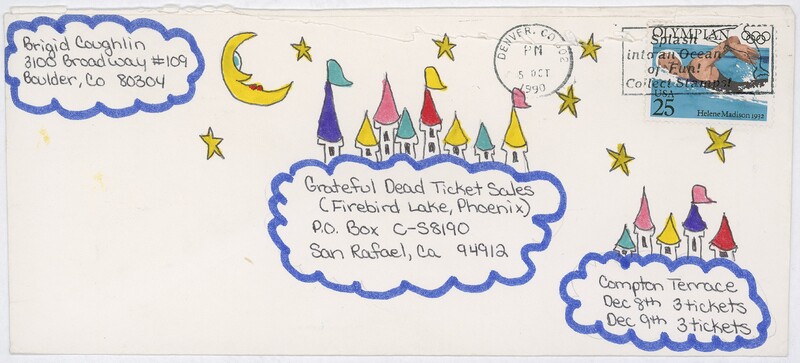 Brigid Coughlin
3100 Broadway #109
Boulder, Co 80304
DENVER, CO 802
PM
5 OCT
1990
OLYMPIAN
Splash
into an Ocean
of Fun!
Collect Stamps!
USA
25
Helene Madison 1932
Grateful Dead Ticket Sales
(Firebird Lake, Phoenix)
P.O. Box C-S8190
San Rafael, Ca 94912
Compton Terrace
Dec 8th 3 tickets
Dec 9th 3 tickets